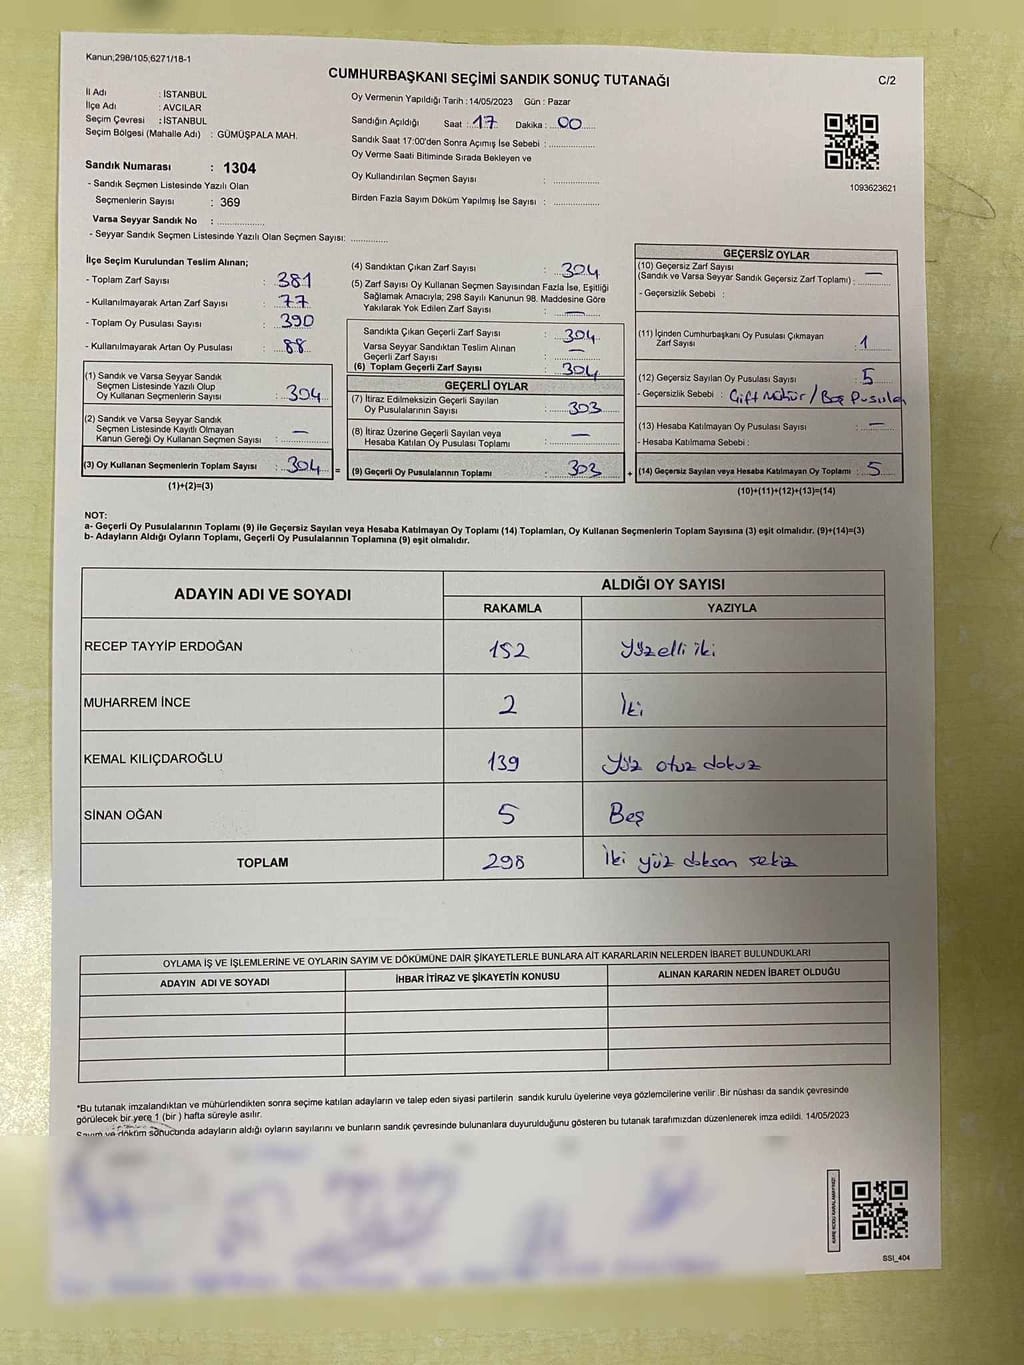 Kanun,298/105,6271/18-1
CUMHURBAŞKANI SEÇİMİ SANDIK SONUÇ TUTANAĞI
C/2
İl Adı : İSTANBUL
İlçe Adı : AVCILAR
Seçim Çevresi : İSTANBUL
Seçim Bölgesi (Mahalle Adı) : GÜMÜŞPALA MAH.
Sandık Numarası : 1304
- Sandık Seçmen Listesinde Yazılı Olan
Seçmenlerin Sayısı : 369
Varsa Seyyar Sandık No : ..................
- Seyyar Sandık Seçmen Listesinde Yazılı Olan Seçmen Sayısı: ..............
Oy Vermenin Yapıldığı Tarih : 14/05/2023 Gün : Pazar
Sandığın Açıldığı Saat : 17 Dakika : 00
Sandık Saat 17:00'den Sonra Açımış İse Sebebi : ..................
Oy Verme Saati Bitiminde Sırada Bekleyen ve
Oy Kullandırılan Seçmen Sayısı : ..................
Birden Fazla Sayım Döküm Yapılmış İse Sayısı : ..................
1093623621
İlçe Seçim Kurulundan Teslim Alınan;
- Toplam Zarf Sayısı : 381
- Kullanılmayarak Artan Zarf Sayısı : 77
- Toplam Oy Pusulası Sayısı : 390
- Kullanılmayarak Artan Oy Pusulası : 88
(1) Sandık ve Varsa Seyyar Sandık
Seçmen Listesinde Yazılı Olup
Oy Kullanan Seçmenlerin Sayısı : 304
(2) Sandık ve Varsa Seyyar Sandık
Seçmen Listesinde Kayıtlı Olmayan
Kanun Gereği Oy Kullanan Seçmen Sayısı : —
(3) Oy Kullanan Seçmenlerin Toplam Sayısı : 304 =
(1)+(2)=(3)
(4) Sandıktan Çıkan Zarf Sayısı : 304
(5) Zarf Sayısı Oy Kullanan Seçmen Sayısından Fazla İse, Eşitliği
Sağlamak Amacıyla; 298 Sayılı Kanunun 98. Maddesine Göre
Yakılarak Yok Edilen Zarf Sayısı : —
Sandıkta Çıkan Geçerli Zarf Sayısı : 304
Varsa Seyyar Sandıktan Teslim Alınan
Geçerli Zarf Sayısı : —
(6) Toplam Geçerli Zarf Sayısı : 304
GEÇERLİ OYLAR
(7) İtiraz Edilmeksizin Geçerli Sayılan
Oy Pusulalarının Sayısı : 303
(8) İtiraz Üzerine Geçerli Sayılan veya
Hesaba Katılan Oy Pusulası Toplamı : —
(9) Geçerli Oy Pusulalarının Toplamı : 303 +
GEÇERSİZ OYLAR
(10) Geçersiz Zarf Sayısı
(Sandık ve Varsa Seyyar Sandık Geçersiz Zarf Toplamı) : —
- Geçersizlik Sebebi :
(11) İçinden Cumhurbaşkanı Oy Pusulası Çıkmayan
Zarf Sayısı : 1
(12) Geçersiz Sayılan Oy Pusulası Sayısı : 5
- Geçersizlik Sebebi : Çift Mühür / Boş Pusula
(13) Hesaba Katılmayan Oy Pusulası Sayısı : —
- Hesaba Katılmama Sebebi :
(14) Geçersiz Sayılan veya Hesaba Katılmayan Oy Toplamı : 5
(10)+(11)+(12)+(13)=(14)
NOT:
a- Geçerli Oy Pusulalarının Toplamı (9) ile Geçersiz Sayılan veya Hesaba Katılmayan Oy Toplamı (14) Toplamları, Oy Kullanan Seçmenlerin Toplam Sayısına (3) eşit olmalıdır. (9)+(14)=(3)
b- Adayların Aldığı Oyların Toplamı, Geçerli Oy Pusulalarının Toplamına (9) eşit olmalıdır.
ADAYIN ADI VE SOYADI
ALDIĞI OY SAYISI
RAKAMLA YAZIYLA
RECEP TAYYİP ERDOĞAN 152 Yüzelli iki
MUHARREM İNCE 2 İki
KEMAL KILIÇDAROĞLU 139 Yüz otuz dokuz
SİNAN OĞAN 5 Beş
TOPLAM 298 İki yüz doksan sekiz
OYLAMA İŞ VE İŞLEMLERİNE VE OYLARIN SAYIM VE DÖKÜMÜNE DAİR ŞİKAYETLERLE BUNLARA AİT KARARLARIN NELERDEN İBARET BULUNDUKLARI
ADAYIN ADI VE SOYADI İHBAR İTİRAZ VE ŞİKAYETİN KONUSU ALINAN KARARIN NEDEN İBARET OLDUĞU
*Bu tutanak imzalandıktan ve mühürlendikten sonra seçime katılan adayların ve talep eden siyasi partilerin sandık kurulu üyelerine veya gözlemcilerine verilir .Bir nüshası da sandık çevresinde
görülecek bir yere 1 (bir ) hafta süreyle asılır.
Sayım ve döküm sonucunda adayların aldığı oyların sayılarını ve bunların sandık çevresinde bulunanlara duyurulduğunu gösteren bu tutanak tarafımızdan düzenlenerek imza edildi. 14/05/2023
SSI_404